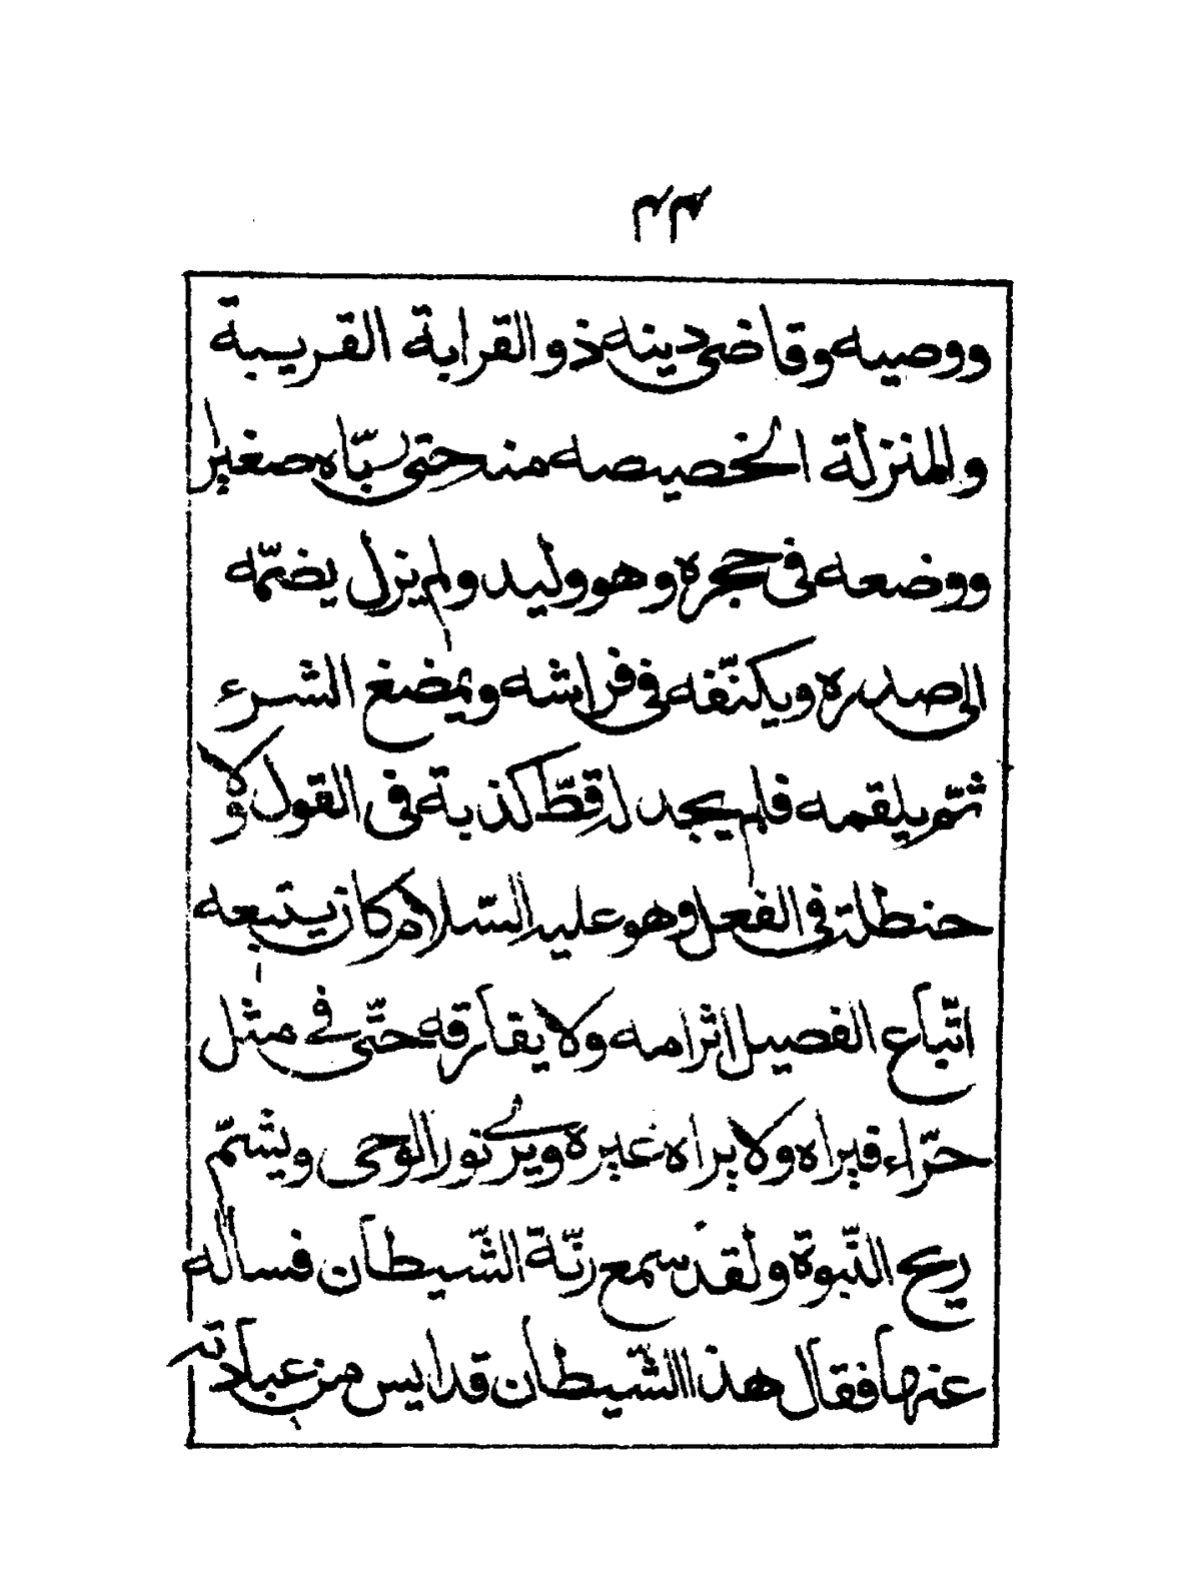 ٢٣
ووصيه وقاضى دينه ذو القرابة القريبة
والمنزلة الخصيصه منه حتى ربّاه صغير
ووضعه فى حجره وهو وليد ولم يزل يضمّه
الى صدره ويكنّفه فى فراشه ويمضغ الشىء
ثمّ يلقمه فلم يجد له قطّ كذبة فى القول ولا
حنطلة فى الفعل وهو عليه السّلام كان يتبعه
اتّباع الفصيل اثر امه ولا يفارقه حتّى فى مثل
حرّاء فيراه ولا يراه غيره ويرى نور الوحى ويشتمّ
ريح النّبوة ولقد سمع رنّة الشّيطان فساله
عنها فقال هذا الشّيطان قد ايس من عبادته